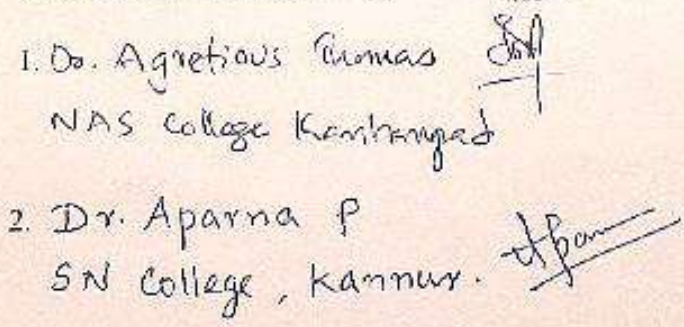 1. Dr. Agretious Thomas
NAS College Kanhangad
2. Dr. Aparna P
SN College, Kannur.